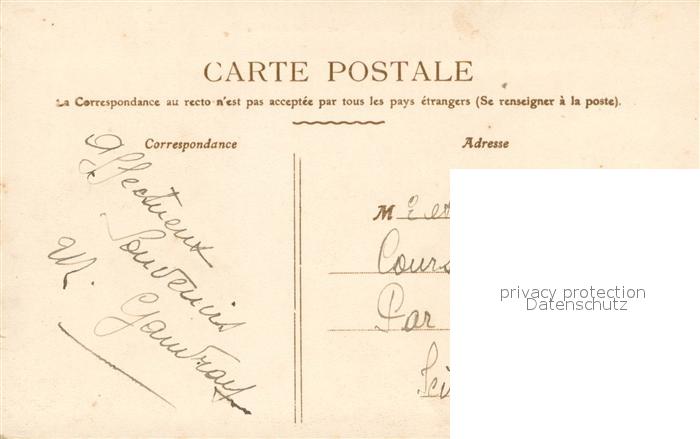 CARTE POSTALE
La Correspondance au recto n'est pas acceptée par tous les pays étrangers (Se renseigner à la poste).
Correspondance
Adresse
Affectueux
Souvenirs
M.
M E et
Cours
Par
privacy protection
Datenschutz